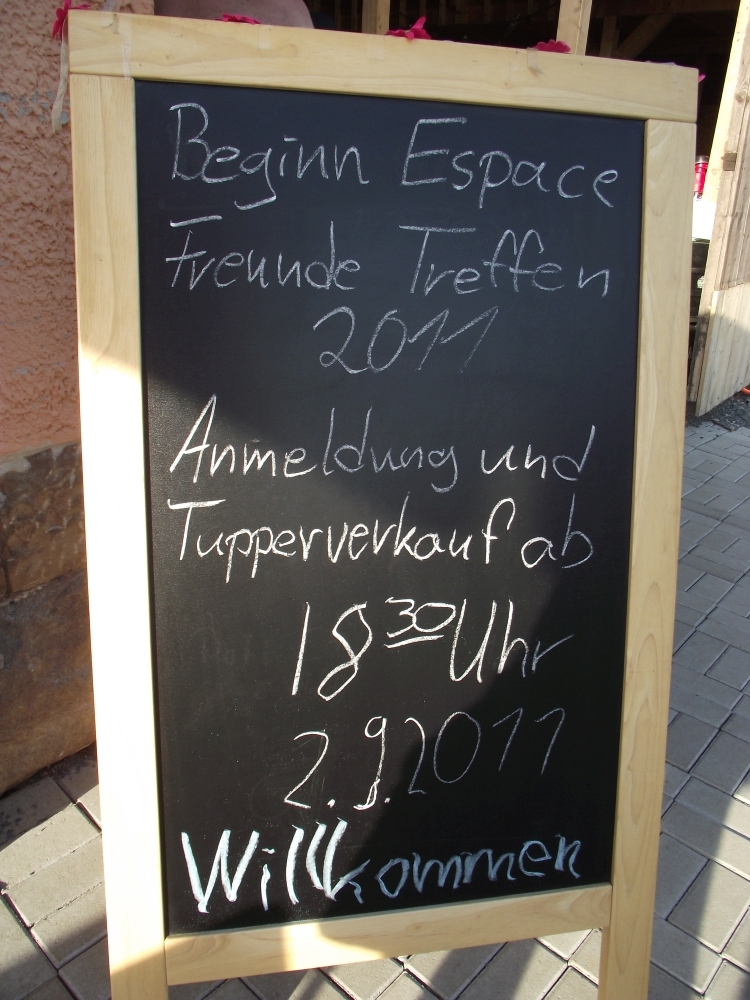 Beginn Espace
Freunde Treffen
2011
Anmeldung und
Tupperverkauf ab
18 30 Uhr
2.9.2011
Willkommen